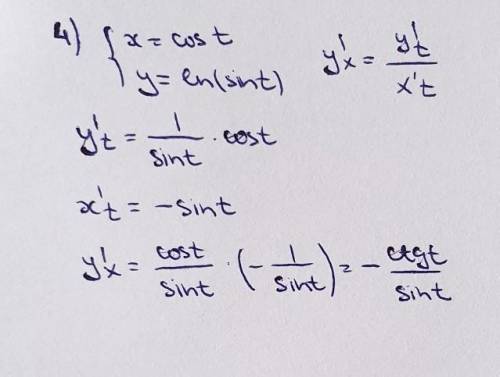 4) { x = cos t
y = ln(sin t)
y'x = y't / x't
y't = 1/sin t · cos t
x't = - sin t
y'x = cos t/sin t · (- 1/sin t) = - ctg t/sin t